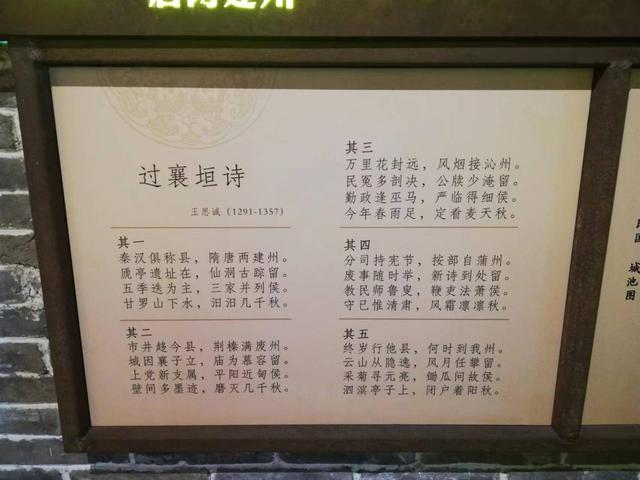 过襄垣诗
王思诚（1291-1357）
其一
秦汉俱称县，隋唐两建州。
虒亭遗址在，仙洞古踪留。
五季迭为主，三家并列侯。
甘罗山下水，汩汩几千秋。
其二
市井趍今县，荆榛满废州。
城因襄子立，庙为慕容留。
上党新支属，平阳近甸侯。
壁间多墨迹，磨灭几千秋。
其三
万里花封远，风烟接沁州。
民冤多剖决，公牍少淹留。
勤政逢巫马，严临得细侯。
今年春雨足，定看麦天秋。
其四
分司持宪节，按部自蒲州。
废事随时举，新诗到处留。
教民师鲁叟，鞭吏法萧侯。
守己惟清肃，风霜凛凛秋。
其五
终岁行他县，何时到我州。
云山从隐逸，风月任攀留。
采菊寻元亮，锄瓜问故侯。
泗滨亭子上，闭户着阳秋。
城池图